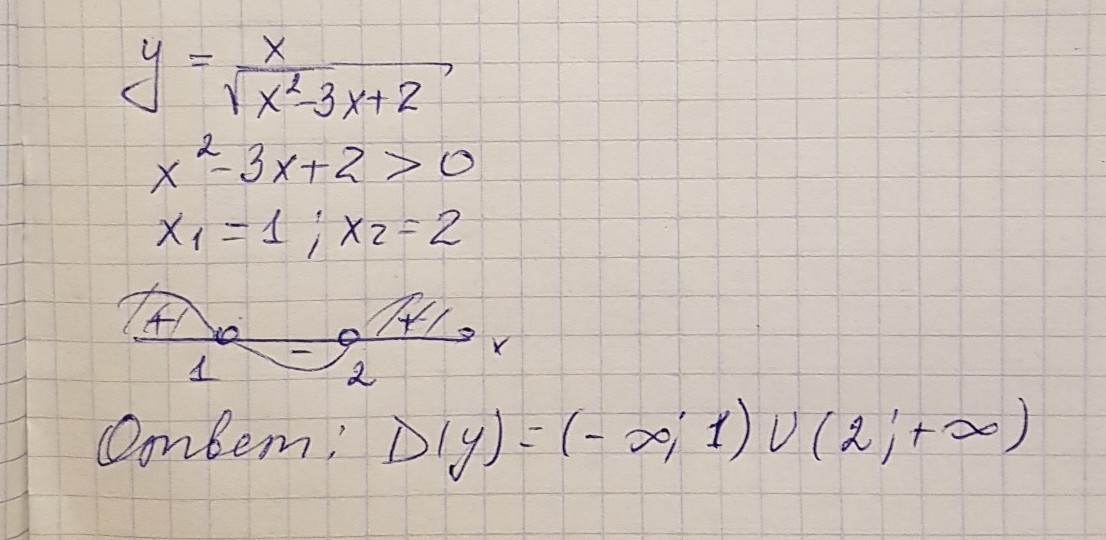 y = x / √(x²-3x+2)
x²-3x+2 > 0
x₁ = 1 ; x₂ = 2
+ - + x
1 2
Ответ: D(y) = (-∞; 1) ∪ (2; +∞)